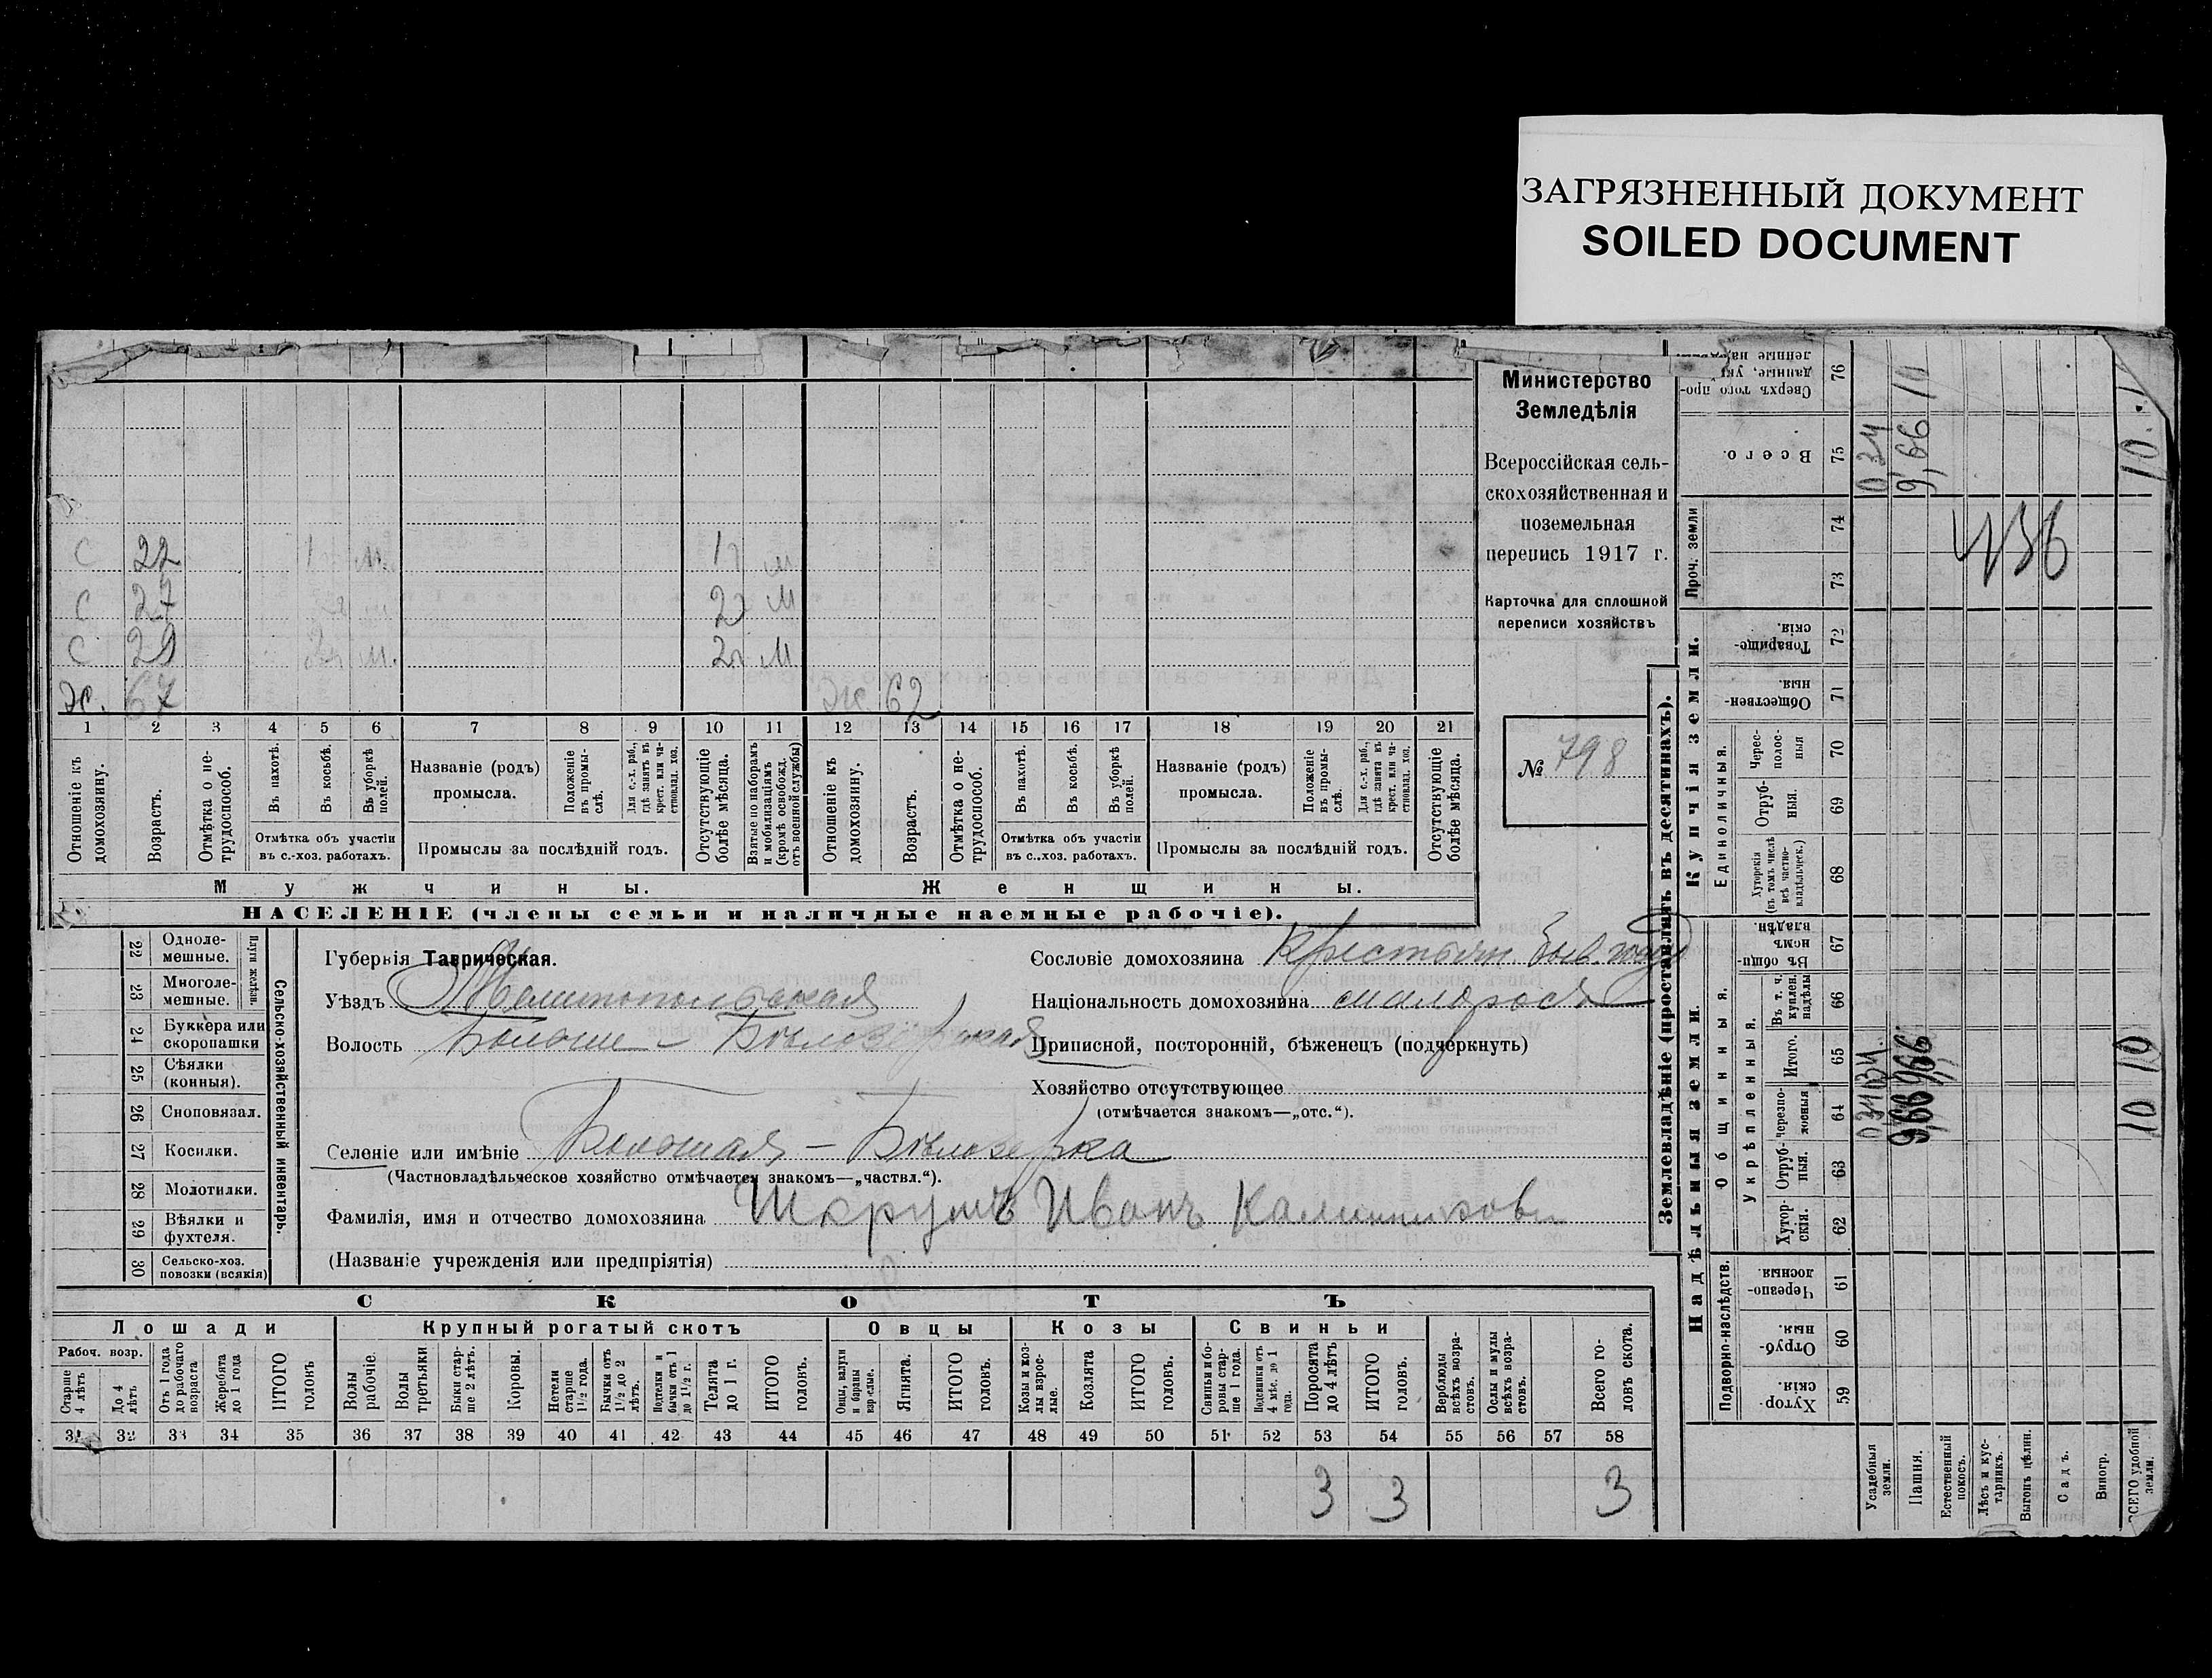 ЗАГРЯЗНЕННЫЙ ДОКУМЕНТ
SOILED DOCUMENT
Министерство
Земледѣлія
Всероссійская сель-
скохозяйственная и
поземельная
перепись 1917 г.
Карточка для сплошной
переписи хозяйствъ
№ 798
С 22 1 м. 1г м
С 27 2г м
С 29 2г м. 2г м
Ж. 67 Ж 62
1 2 3 4 5 6 7 8 9 10 11 12 13 14 15 16 17 18 19 20 21
Отношеніе къ домохозяину.
Возрастъ.
Отмѣтка о не-трудоспособ.
Въ пахотѣ.
Въ косьбѣ.
Въ уборкѣ полей.
Отмѣтка объ участіи
въ с.-хоз. работахъ.
Названіе (родъ)
промысла.
Положеніе въ промы-слѣ.
Для с.-х. раб., гдѣ занятъ въ крест. или ча-стновлад. хоз.
Промыслы за послѣдній годъ.
Отсутствующіе болѣе мѣсяца.
Взятые по наборамъ и мобилизаціямъ (кромѣ освобожд. отъ военной службы)
Отношеніе къ домохозяину.
Возрастъ.
Отмѣтка о не-трудоспособ.
Въ пахотѣ.
Въ косьбѣ.
Въ уборкѣ полей.
Отмѣтка объ участіи
въ с..хоз. работахъ.
Названіе (родъ)
промысла.
Положеніе въ промы-слѣ.
Для с.-х. раб., гдѣ занята въ крест. или ча-стновлад. хоз.
Промыслы за послѣдній годъ.
Отсутствующіе болѣе мѣсяца.
Мужчины. Женщины.
НАСЕЛЕНІЕ (члены семьи и наличные наемные рабочіе).
Сельско-хозяйственный инвентарь.
Плуги желѣзн.
22 Одноле-мешные.
23 Многоле-мешные.
24 Буккера или скоропашки
25 Сѣялки (конныя).
26 Сноповязал.
27 Косилки.
28 Молотилки.
29 Вѣялки и фухтеля.
30 Сельско-хоз. повозки (всякія)
Губернія Таврическая.
Уѣздъ Мелитопольская
Волость Больше-Бѣлозерская
Селеніе или имѣніе Большая-Бѣлозерка
(Частновладѣльческое хозяйство отмѣчается знакомъ—„частвл.“).
Фамилія, имя и отчество домохозяина Шкрумъ Иванъ Калинниковъ
(Названіе учрежденія или предпріятія)
Сословіе домохозяина Крестьян. быв.
Національность домохозяина малоросъ
Приписной, посторонній, бѣженецъ (подчеркнуть)
Хозяйство отсутствующее
(отмѣчается знакомъ—„отс.“).
СКОТЪ
Лошади
Крупный рогатый скотъ
Овцы
Козы
Свиньи
Рабоч. возр.
Старше 4 лѣтъ
До 4 лѣтъ
Отъ 1 года до рабочаго возраста
Жеребята до 1 года
ИТОГО головъ
Волы рабочіе.
Волы третьяки
Быки стар-ше 2 лѣтъ.
Коровы.
Нетели старше 1 1/2 года.
Бычки отъ 1 1/2 до 2 лѣтъ.
Подтелки и бычки отъ 1 до 1 1/2 г.
Телята до 1 г.
ИТОГО головъ.
Овцы, валухи и бараны взрослые.
Ягнята.
ИТОГО головъ.
Козы и коз-лы взрос-лые.
Козлята
ИТОГО головъ.
Свиньи и бо-ровы стар-ше 1 года.
Подсвинки отъ 4 мѣс. до 1 года.
Поросята до 4 лѣтъ
ИТОГО головъ.
Верблюды всѣхъ возра-стовъ.
Ослы и мулы всѣхъ возра-стовъ.
Всего го-ловъ скота.
31 32 33 34 35 36 37 38 39 40 41 42 43 44 45 46 47 48 49 50 51 52 53 54 55 56 57 58
3 3 3
Землевладѣніе (проставлять въ десятинахъ).
Надѣльныя земли.
Купчія земли.
Проч. земли
Подворно-наслѣдств.
Общинныя.
Укрѣпленныя.
Единоличныя.
59 Хутор-скія.
60 Отруб-ныя.
61 Черезпо-лосныя.
62 Хутор-скія.
63 Отруб-ныя.
64 Черезпо-лосныя
65 Итого.
66 Въ т. ч. куплен. надѣлы
67 Въ общи-номъ владѣн.
68 Хуторскія (въ томъ числѣ всѣ частно-владѣльческ.)
69 Отруб-ныя.
70 Черес-полос-ныя
71 Обществен-ныя.
72 Товарище-скія.
73
74
75 Всего.
76 Сверхъ того про-данные,
Усадебныя земли. 0 34 0 34 0 34
Пашня. 9,66 9,66 9,66
Естественный покосъ.
Лѣсъ и кус-тарникъ.
Выгонъ цѣлин.
Садъ.
Виногр.
ВСЕГО удобной земли. 10 10 10
436